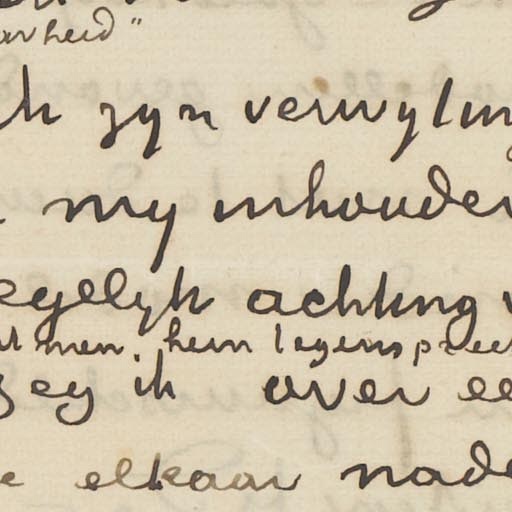 arheid"
ik zyn verwyting
my inhouden
egelyk achting v
men hem tegenspreek
zeg ik over ee
e elkaar nade